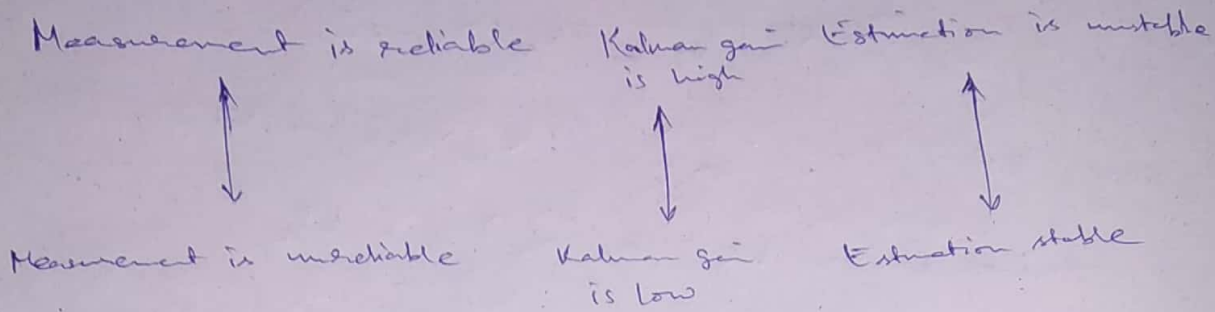 Measurement is reliable Kalman gain Estimation is unstable
is high
Measurement is unreliable Kalman gain Estimation stable
is low